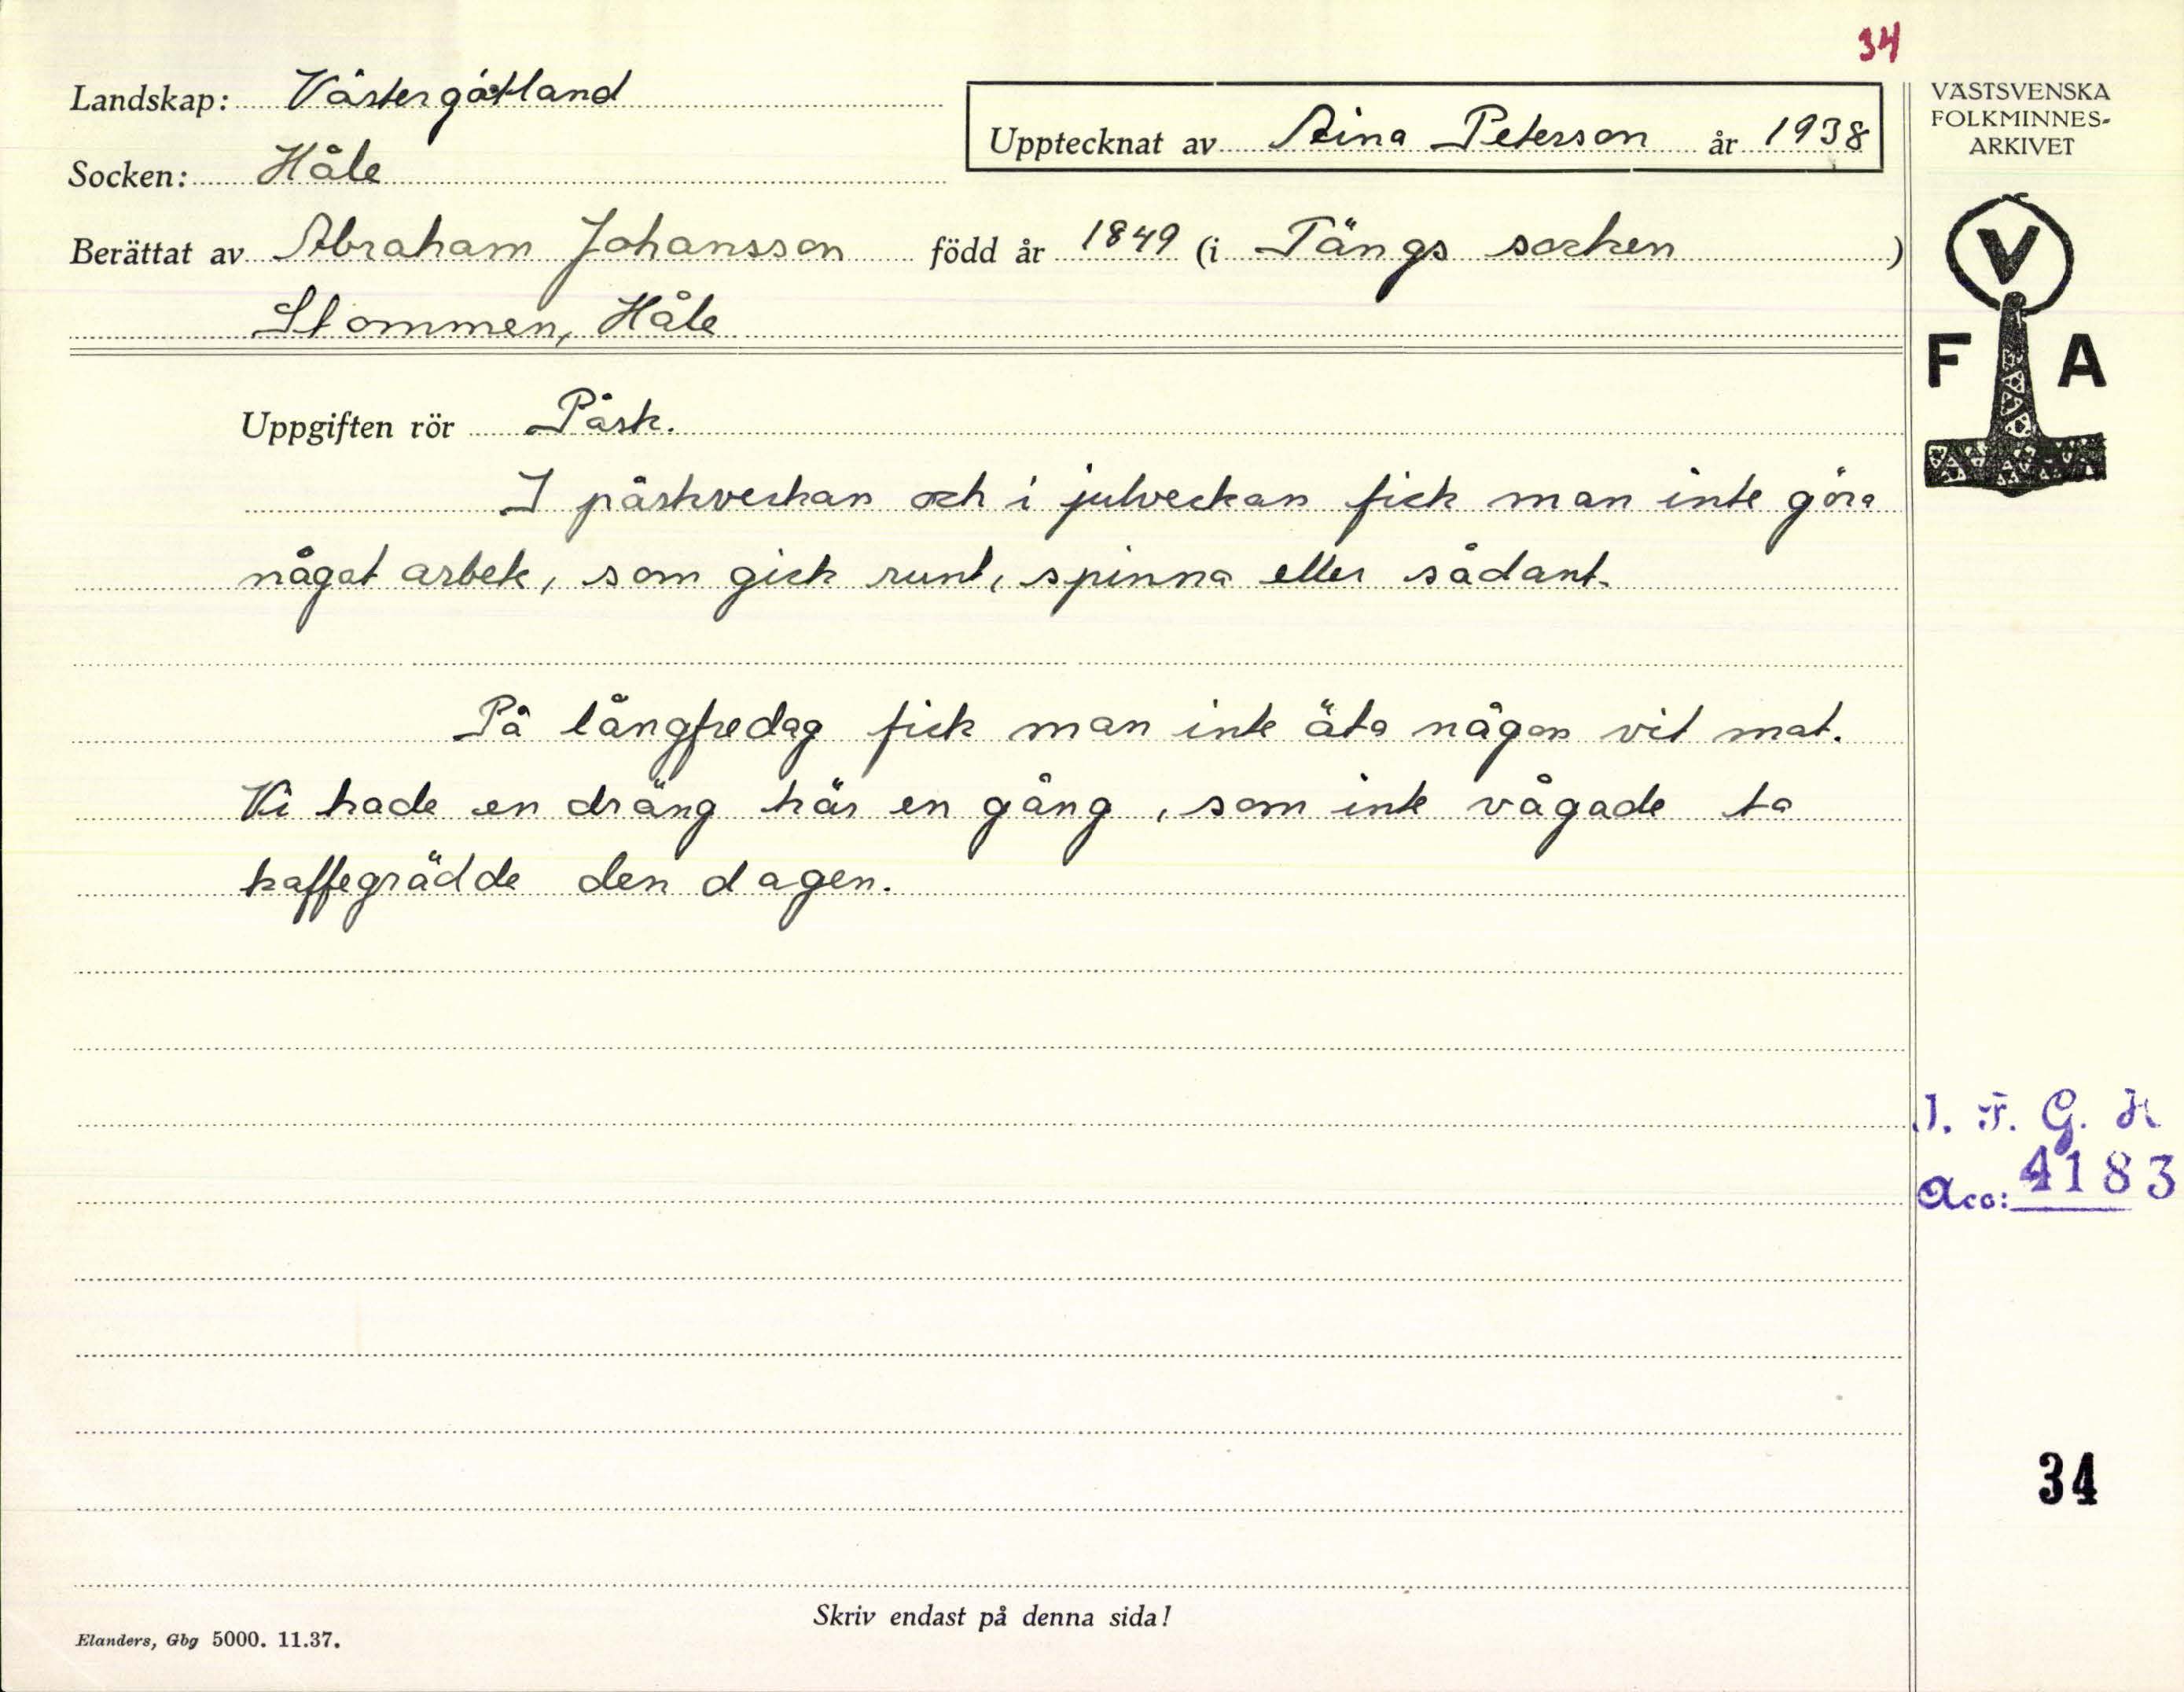 34
Landskap: Västergötland
VÄSTSVENSKA
FOLKMINNES-
ARKIVET
Upptecknat av Aina Peterson år 1938
Socken: Håle
Berättat av Abraham Johansson född år 1849 (i Tängs socken)
Stommen, Håle
V
F A
Uppgiften rör Påsk.
I påskveckan och i julveckan fick man inte göra
något arbete, som gick runt, spinna eller sådant.
På långfredag fick man inte äta någon vit mat.
Vi hade en dräng här en gång, som inte vågade ta
kaffegrädde den dagen.
I. F. G. H
Acc: 4183
34
Skriv endast på denna sida!
Elanders, Gbg 5000. 11.37.